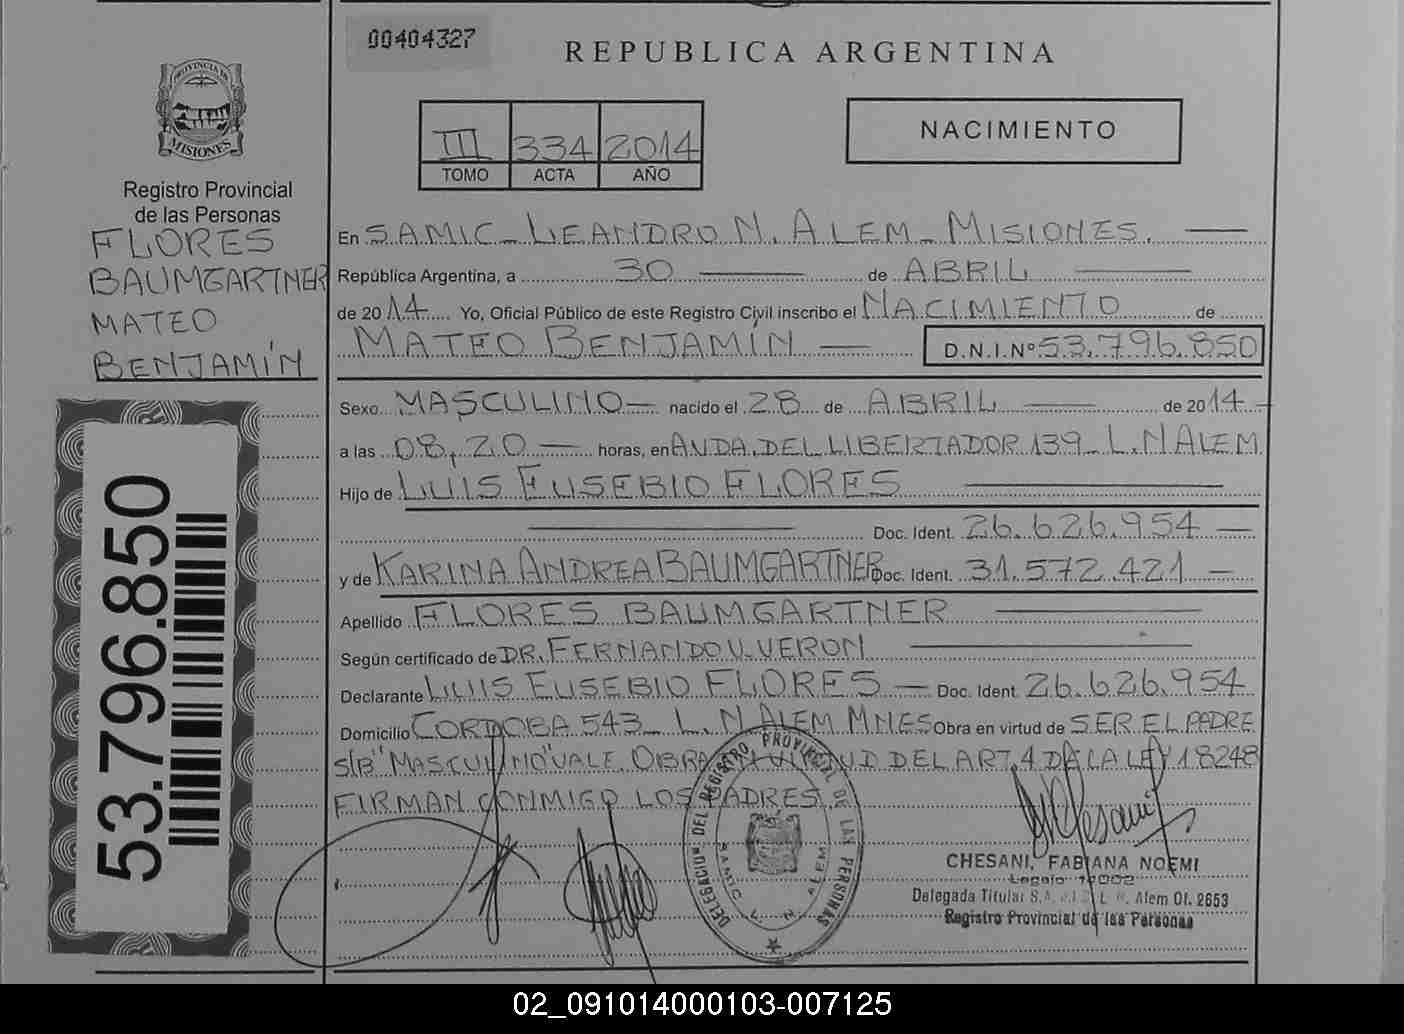 00404327
REPUBLICA ARGENTINA
PROVINCIA DE
MISIONES
Registro Provincial
de las Personas
FLORES
BAUMGARTNER
MATEO
BENJAMÍN
53.796.850
III 334 2014
TOMO ACTA AÑO
NACIMIENTO
En SAMIC - LEANDRO N. ALEM - MISIONES.
República Argentina, a 30 de ABRIL
de 2014 Yo, Oficial Público de este Registro Civil inscribo el NACIMIENTO de
MATEO BENJAMÍN D.N.I.Nº 53.796.850
Sexo MASCULINO nacido el 28 de ABRIL de 2014
a las 08,20 horas, en AVDA. DEL LIBERTADOR 139 - L. N ALEM
Hijo de LUIS EUSEBIO FLORES
Doc. Ident. 26.626.954
y de KARINA ANDREA BAUMGARTNER Doc. Ident. 31.572.421
Apellido FLORES BAUMGARTNER
Según certificado de DR. FERNANDO V. VERON
Declarante LUIS EUSEBIO FLORES Doc. Ident. 26.626.954
Domicilio CORDOBA 543 - L. N ALEM MNES Obra en virtud de SER EL PADRE
S/B "MASCULINO" VALE. OBRA VIRTUD DEL ART. 4 DE LA LEY 18248
FIRMAN CONMIGO LOS PADRES
DELEGACION DEL REGISTRO PROVINCIAL DE LAS PERSONAS
L. N. ALEM
CHESANI, FABIANA NOEMI
Legajo
Delegada Titular L. N. Alem Of. 2653
Registro Provincial de las Personas
02_091014000103-007125